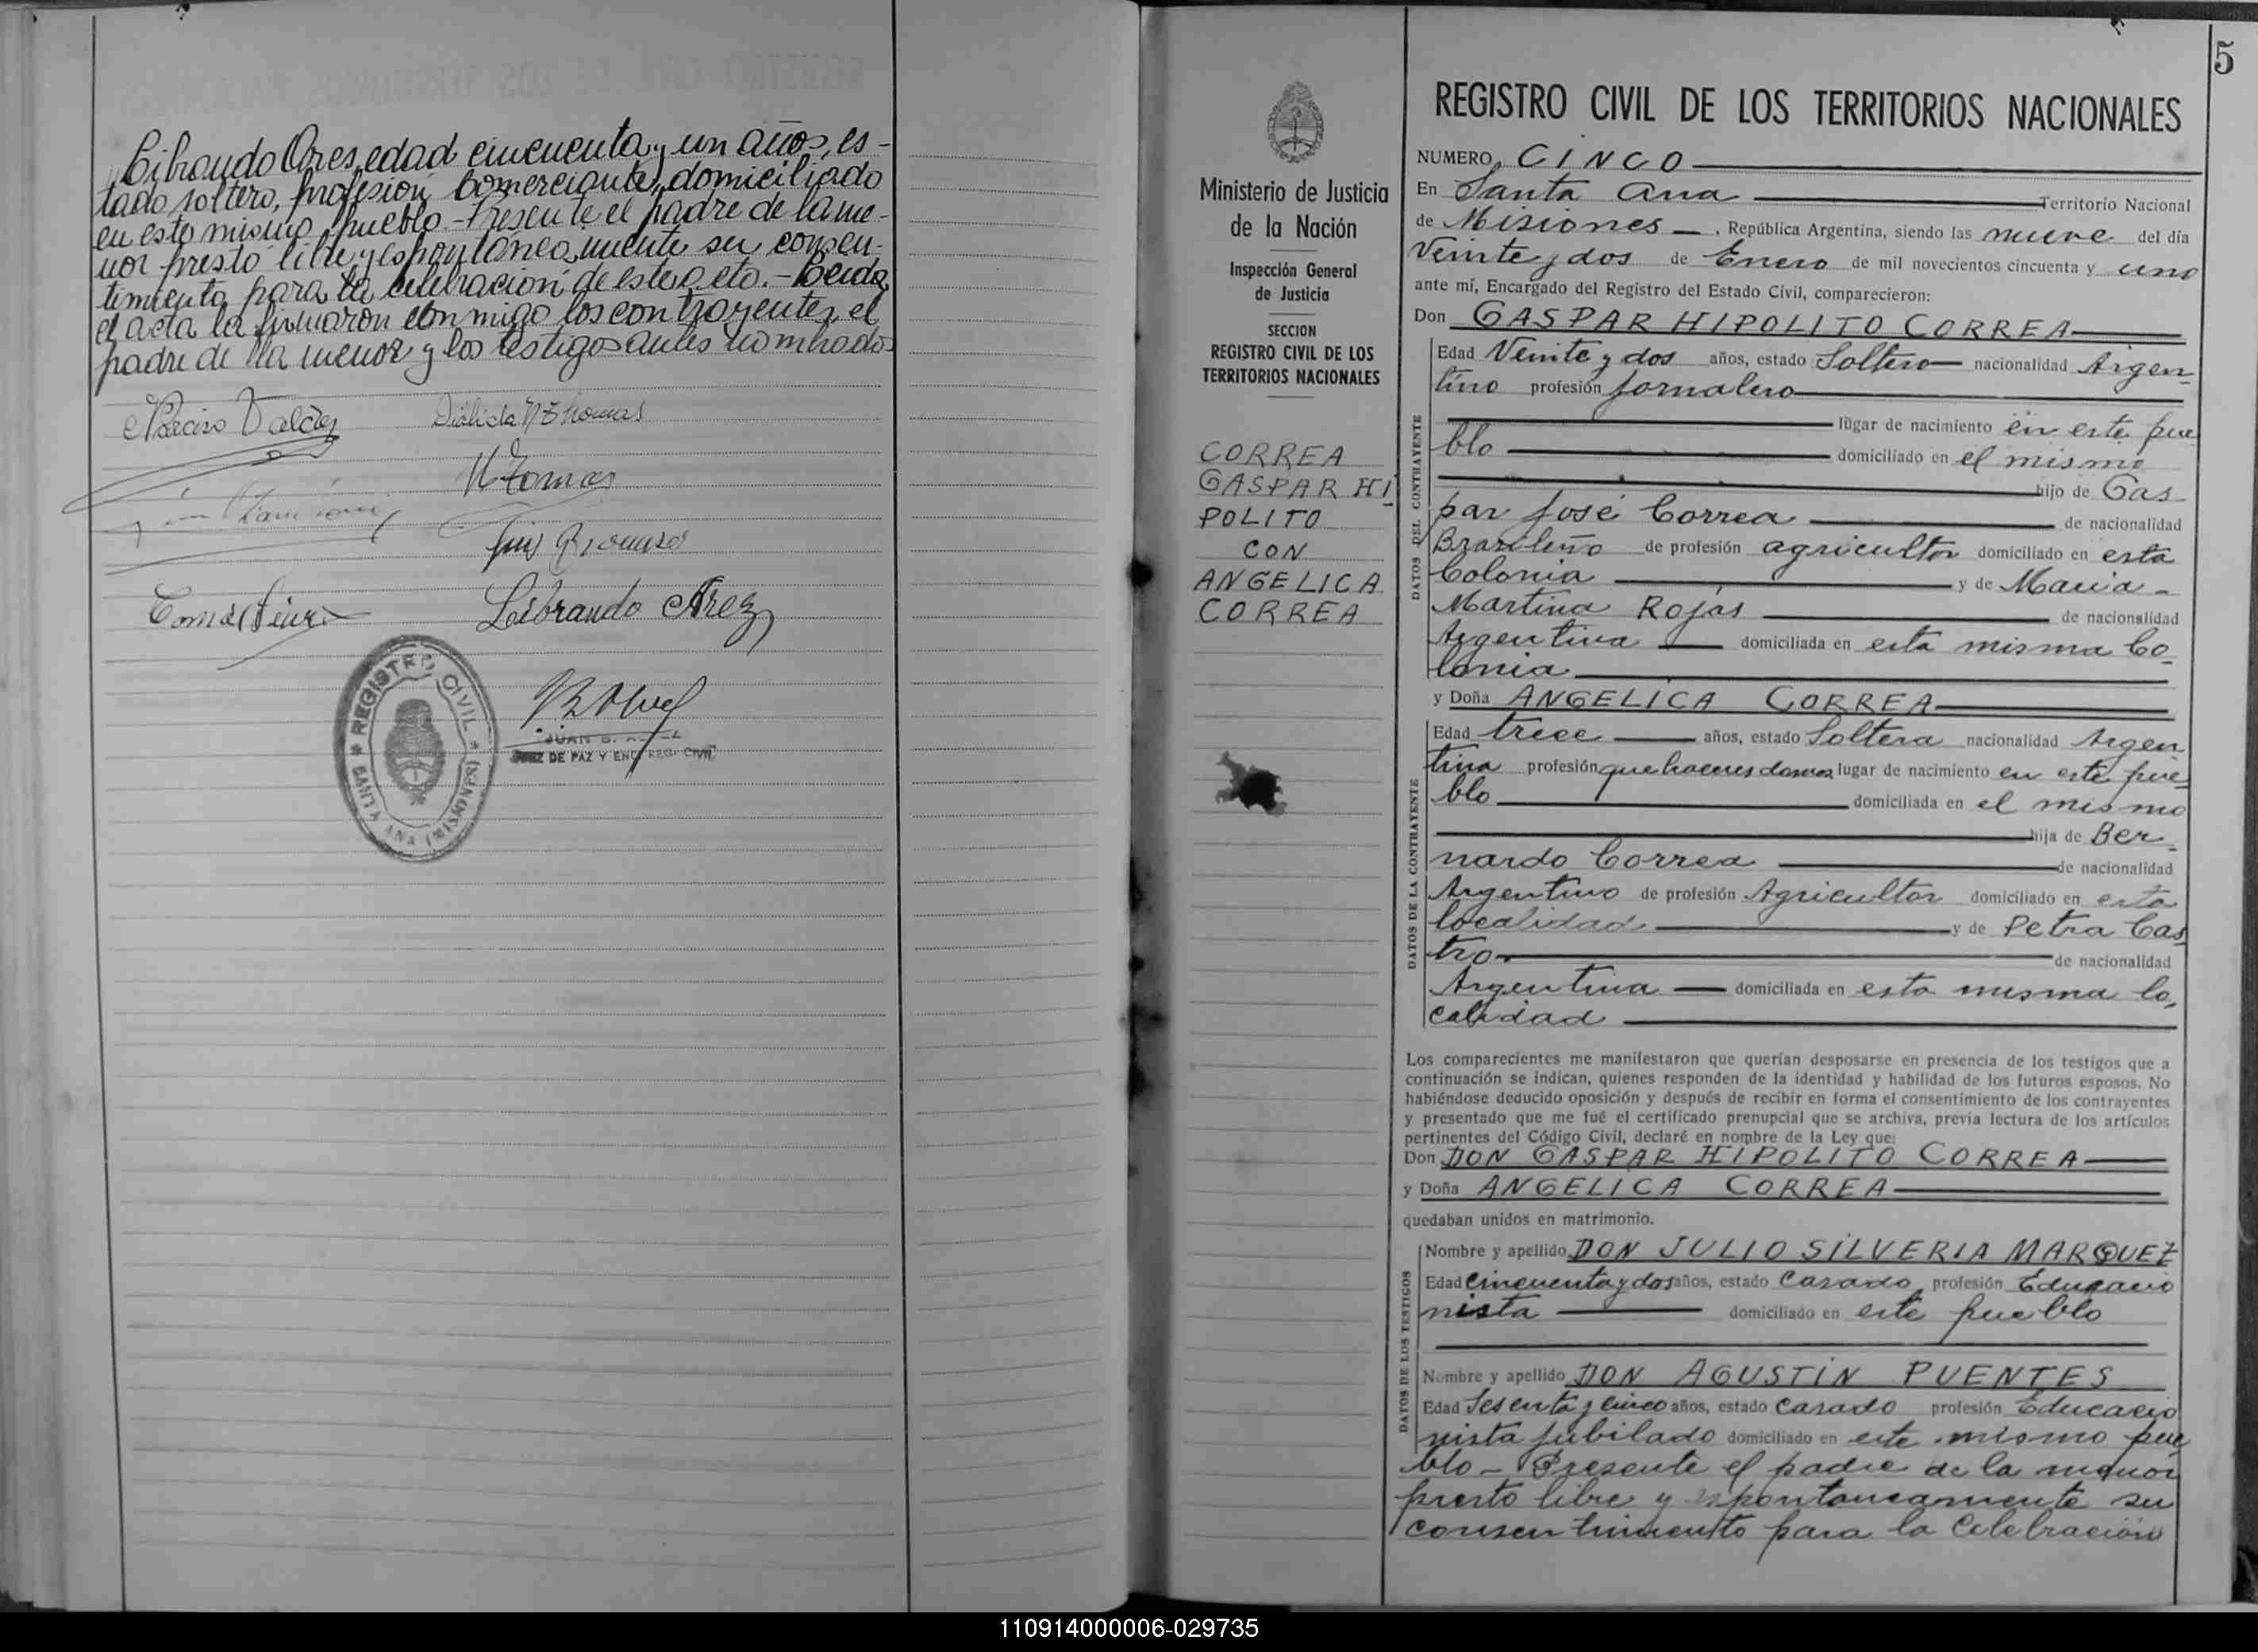 Librando Ares, edad cincuenta y un años, es-
tado soltero, profesión Comerciante, domiciliado
en este mismo pueblo.- Presente el padre de la me-
nor prestó libre y espontáneamente su consen-
timiento para la celebración de este acto.- Leida
el acta la firmaron conmigo los contrayentes, el
padre de la menor y los testigos antes nombrados
Narciso Valdez
Librando Arez
REGISTRO CIVIL
SANTA ANA (MISIONES)
JUEZ DE PAZ Y ENC. REG. CIVIL
5
Ministerio de Justicia
de la Nación
Inspección General
de Justicia
SECCION
REGISTRO CIVIL DE LOS
TERRITORIOS NACIONALES
CORREA
GASPAR HI
POLITO
CON
ANGELICA
CORREA
REGISTRO CIVIL DE LOS TERRITORIOS NACIONALES
NUMERO CINCO
En Santa Ana Territorio Nacional
de Misiones, República Argentina, siendo las nueve del día
Veinte y dos de Enero de mil novecientos cincuenta y uno
ante mí, Encargado del Registro del Estado Civil, comparecieron:
Don GASPAR HIPOLITO CORREA
DATOS DEL CONTRAYENTE
Edad Veinte y dos años, estado Soltero nacionalidad Argen-
tino profesión Jornalero
lugar de nacimiento en este pue
blo domiciliado en el mismo
hijo de Gas
par José Correa de nacionalidad
Brasileño de profesión agricultor domiciliado en esta
Colonia y de Maria
Martina Rojas de nacionalidad
Argentina domiciliada en esta misma Co-
lonia
y Doña ANGELICA CORREA
DATOS DE LA CONTRAYENTE
Edad trece años, estado Soltera nacionalidad Argen
tina profesión quehaceres domes. lugar de nacimiento en este pue-
blo domiciliada en el mismo
hija de Ber-
nardo Correa de nacionalidad
Argentino de profesión Agricultor domiciliado en esta
localidad y de Petra Cas
tro de nacionalidad
Argentina domiciliada en esta misma lo-
calidad
Los comparecientes me manifestaron que querían desposarse en presencia de los testigos que a
continuación se indican, quienes responden de la identidad y habilidad de los futuros esposos. No
habiéndose deducido oposición y después de recibir en forma el consentimiento de los contrayentes
y presentado que me fué el certificado prenupcial que se archiva, previa lectura de los artículos
pertinentes del Código Civil, declaré en nombre de la Ley que:
Don DON GASPAR HIPOLITO CORREA
y Doña ANGELICA CORREA
quedaban unidos en matrimonio.
DATOS DE LOS TESTIGOS
Nombre y apellido DON JULIO SILVERIA MARQUEZ
Edad Cincuenta y dos años, estado Casado profesión Educacio
nista domiciliado en este pueblo
Nombre y apellido DON AGUSTIN PUENTES
Edad Sesenta y cinco años, estado Casado profesión Educacio
nista jubilado domiciliado en este mismo pue
blo - Presente el padre de la menor
presto libre y espontaneamente su
consentimiento para la Celebración
110914000006-029735